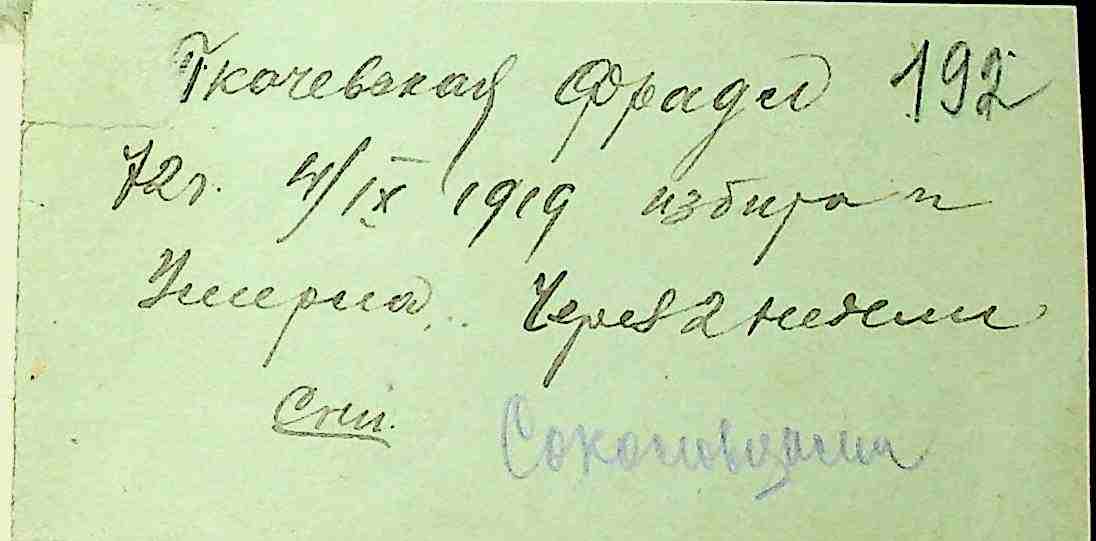 Ткачевская Фрадл 192
72 г. 4/IX 1919 избита и
Умерла. Через 2 недели
Соколовцами